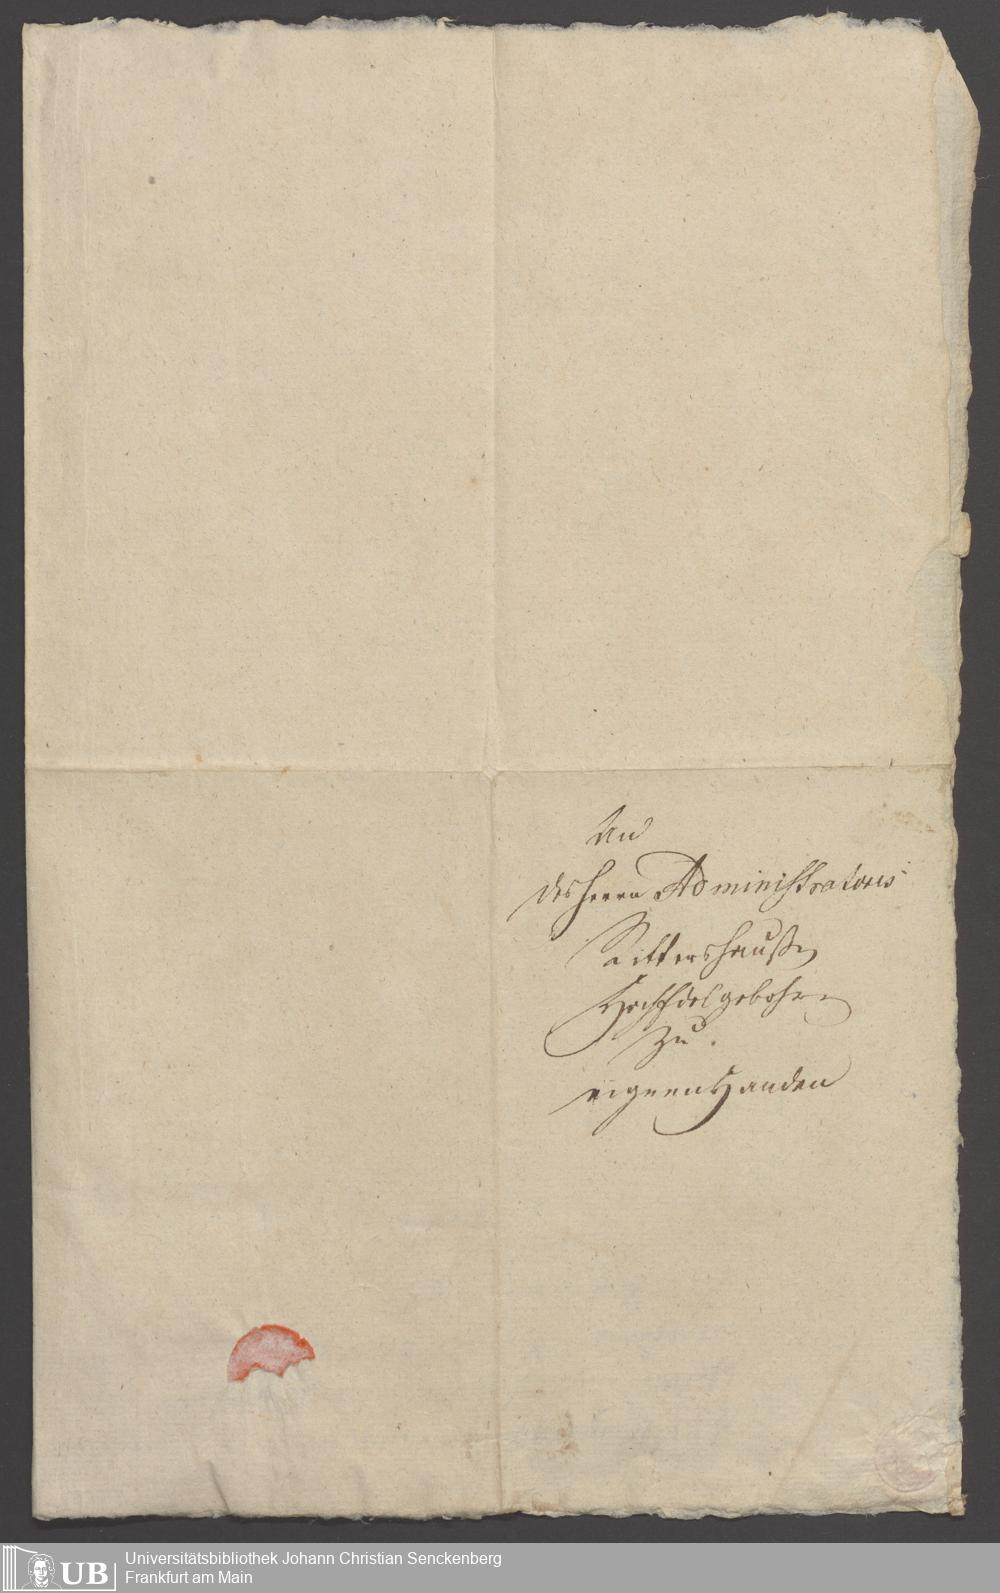 An
des Herrn Administratoris
Rittershaußen
Hochedelgebohren
zu
eignen Handen
UB
Universitätsbibliothek Johann Christian Senckenberg
Frankfurt am Main